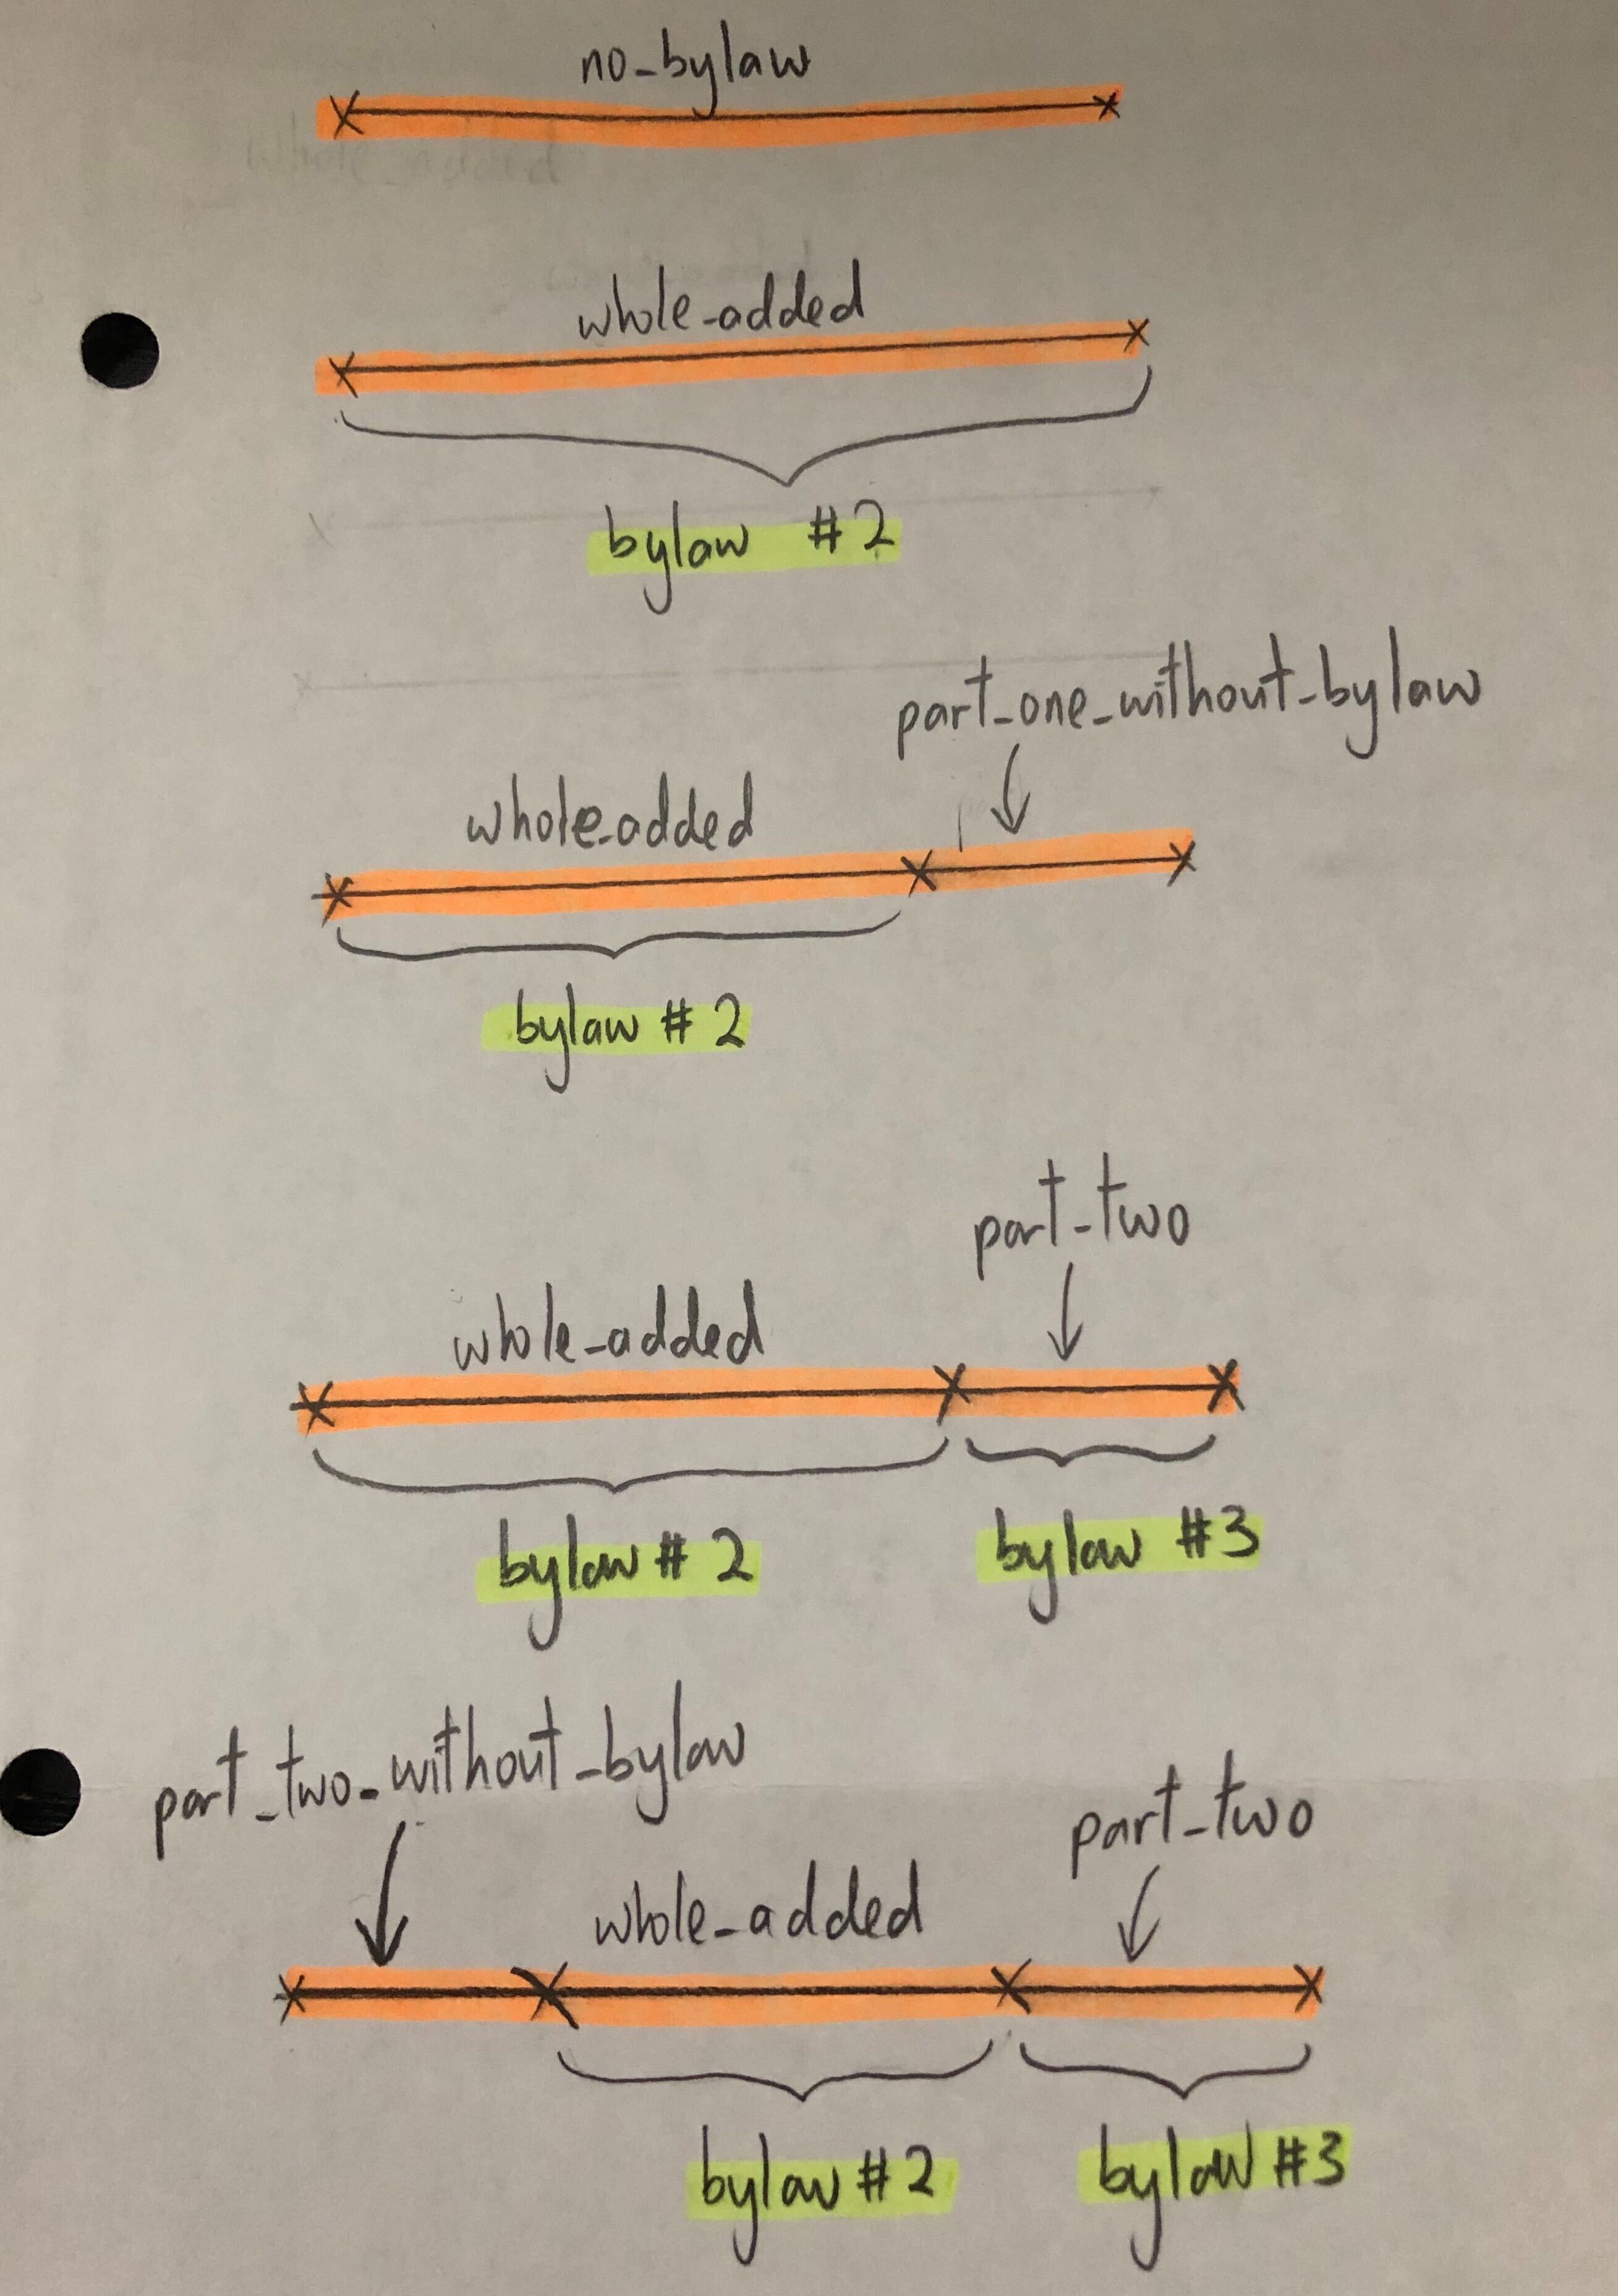 no_bylaw
whole_added
bylaw #2
part_one_without_bylaw
whole_added
bylaw #2
part_two
whole_added
bylaw #2
bylaw #3
part_two_without_bylaw
part_two
whole_added
bylaw #2
bylaw #3